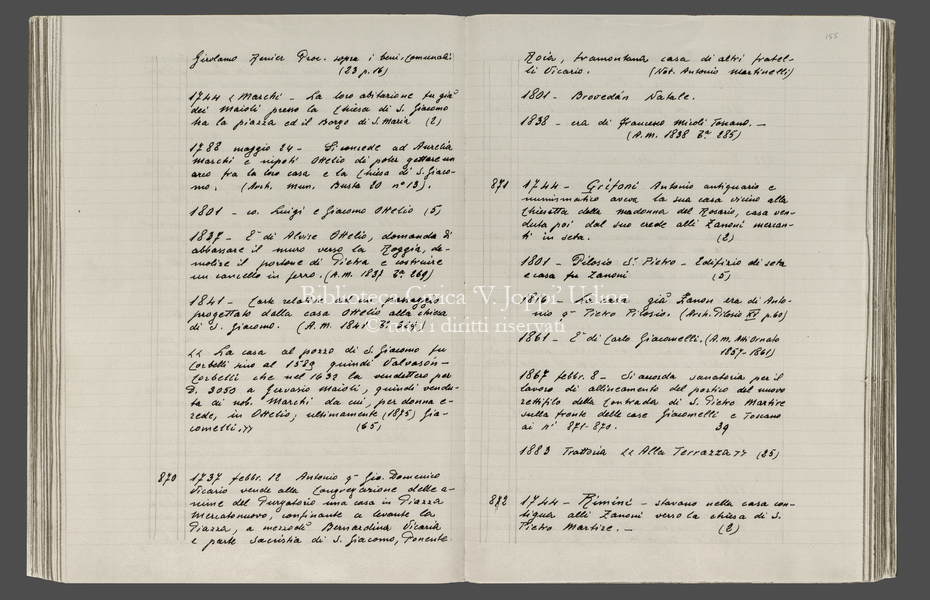 Girolamo Renier Proc. sopra i beni comunali
(23 p.16)
1744 < Marchi - La loro abitazione fu già
dei Maioli presso la Chiesa di S. Giacomo
tra la piazza ed il Borgo di S. Maria (2)
1788 maggio 24 - Si concede ad Aurelia
Marchi e nipoti Ottelio di poter gettare un
arco fra la loro casa e la Chiesa di S. Giaco-
mo. (Arch. Mun. Busta 20 n° 13).
1801 - co. Luigi e Giacomo Ottelio (5)
1837 - È di Alvise Ottelio, domanda di
abbassare il muro verso la Roggia, de-
molire il portone di Pietra e costruire
un cancello in ferro. (A.M. 1837 Ba 269)
1841 - Carte relative ad un passaggio
progettato dalla casa Ottelio alla chiesa
di S. Giacomo. (A.M. 1841
<< La casa al pozzo di S. Giacomo fu
Corbelli sino al 1589 quindi Valvason-
Corbelli che nel 1632 la vendettero per
D. 3050 a Gervasio Maioli, quindi vendu-
ta ai nob. Marchi da cui, per donna e-
rede, in Ottelio; ultimamente (1875) Gia-
comelli.>> (65)
870 1737 febbr. 12 Antonio q.m Gio. Domenico
Vicario vende alla Congregazione delle a-
nime del Purgatorio una casa in Piazza
Mercatonuovo, confinante a levante la
Piazza, a mezzodì Bernardina Vicaria
e parte Sacristia di S. Giacomo, Ponente
155
Roia, tramontana casa di altri fratel-
li Vicario. (Not. Antonio Martinelli)
1801 - Brovedan Natale.
1838 - era di Francesco Miroli Toscano. -
(A.M. 1838 Ba 285)
871 1744 - Grifoni Antonio antiquario e
numismatico aveva la sua casa vicino alla
Chiesetta della Madonna del Rosario, casa ven-
duta poi dal suo erede alli Zanoni mercan-
ti in seta. (2)
1801 - Pilosio Sr Pietro - Edifizio di seta
e casa fu Zanoni (5)
1816 - La casa già Zanon era di Anto-
nio q.m Pietro Pilosio. (Arch. Pilosio XV p.60)
1861 - È di Carlo Giacomelli. (A.M. Atti Ornato
1857-1861)
1867 febbr. 8 - Si accorda sanatoria per il
lavoro di allineamento del portico del nuovo
rettifilo della Contrada di S. Pietro Martire
sulla fronte delle case Giacomelli e Toscano
ai ni 871-870. 39
1883 Trattoria << Alla Terrazza >> (25)
872 1744 - Rimini - stavano nella casa con-
tigua alli Zanoni verso la chiesa di S.
Pietro Martire. - (2)
Biblioteca Civica 'V. Joppi' Udine
© tutti i diritti riservati